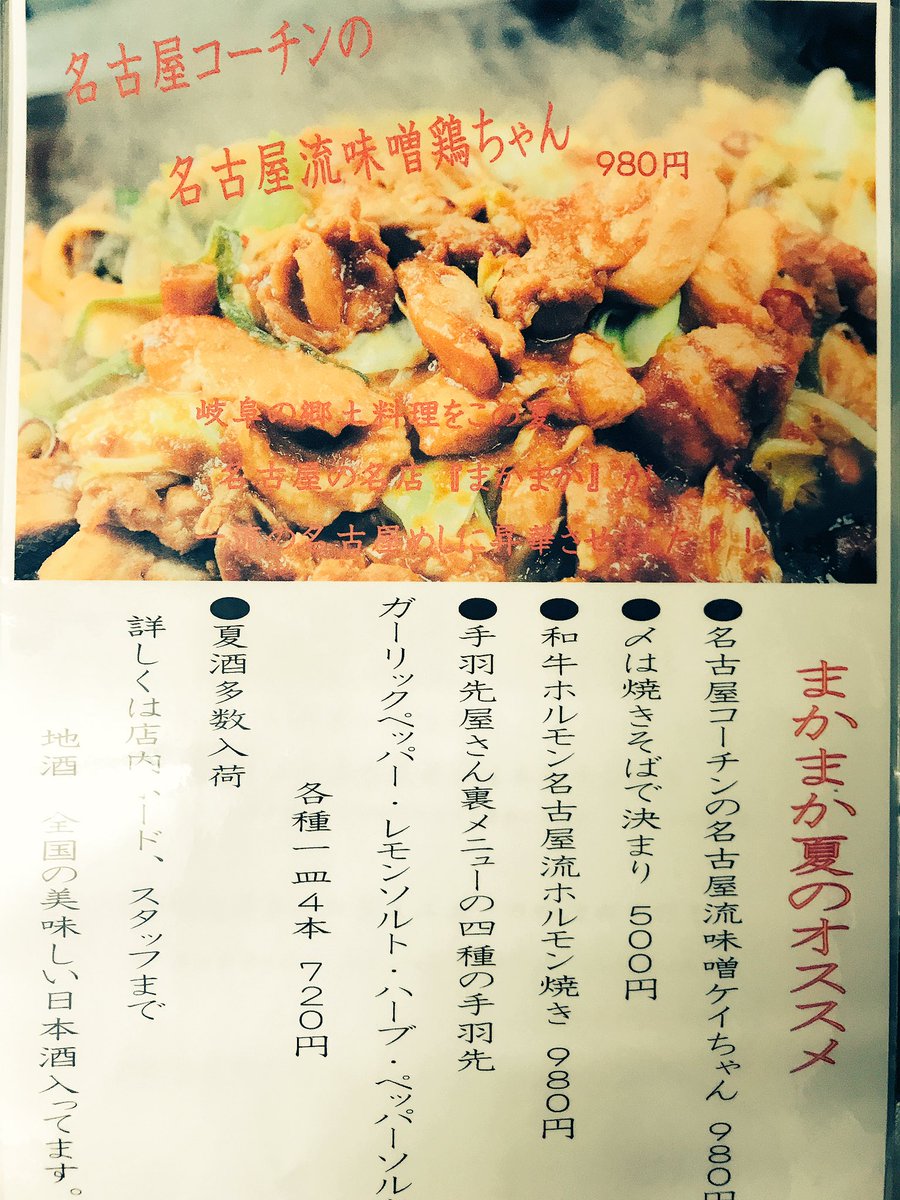 名古屋コーチンの
名古屋流味噌鶏ちゃん 980円
岐阜の郷土料理をこの夏
名古屋の名店『まかまか』が
の名古屋めしに昇華させ
まかまか夏のオススメ
●名古屋コーチンの名古屋流味噌ケイちゃん 980円
●〆は焼きそばで決まり 500円
●和牛ホルモン名古屋流ホルモン焼き 980円
●手羽先屋さん裏メニューの四種の手羽先
ガーリックペッパー・レモンソルト・ハーブ・ペッパーソル
各種一皿4本 720円
●夏酒多数入荷
詳しくは店内 ード、スタッフまで
地酒 全国の美味しい日本酒入ってます。